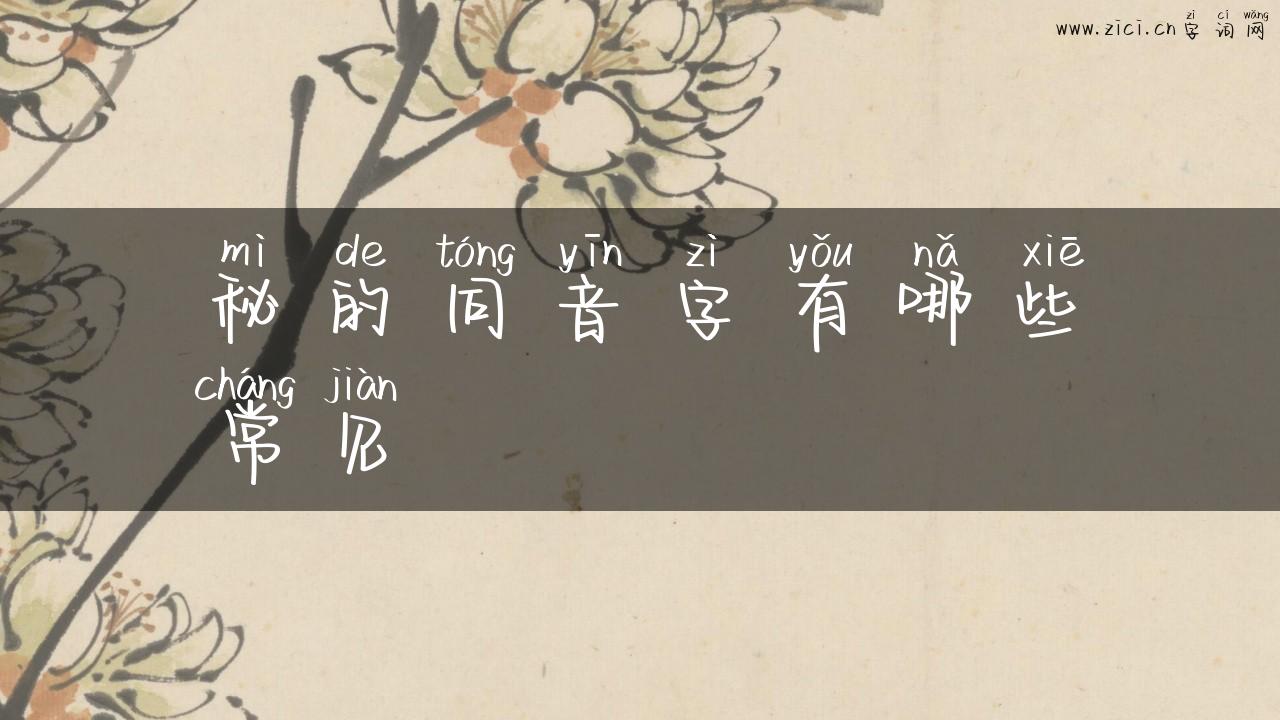 www.zici.cn zì cí wǎng
字词网
mì de tóng yīn zì yǒu nǎ xiē
秘的同音字有哪些
cháng jiàn
常见